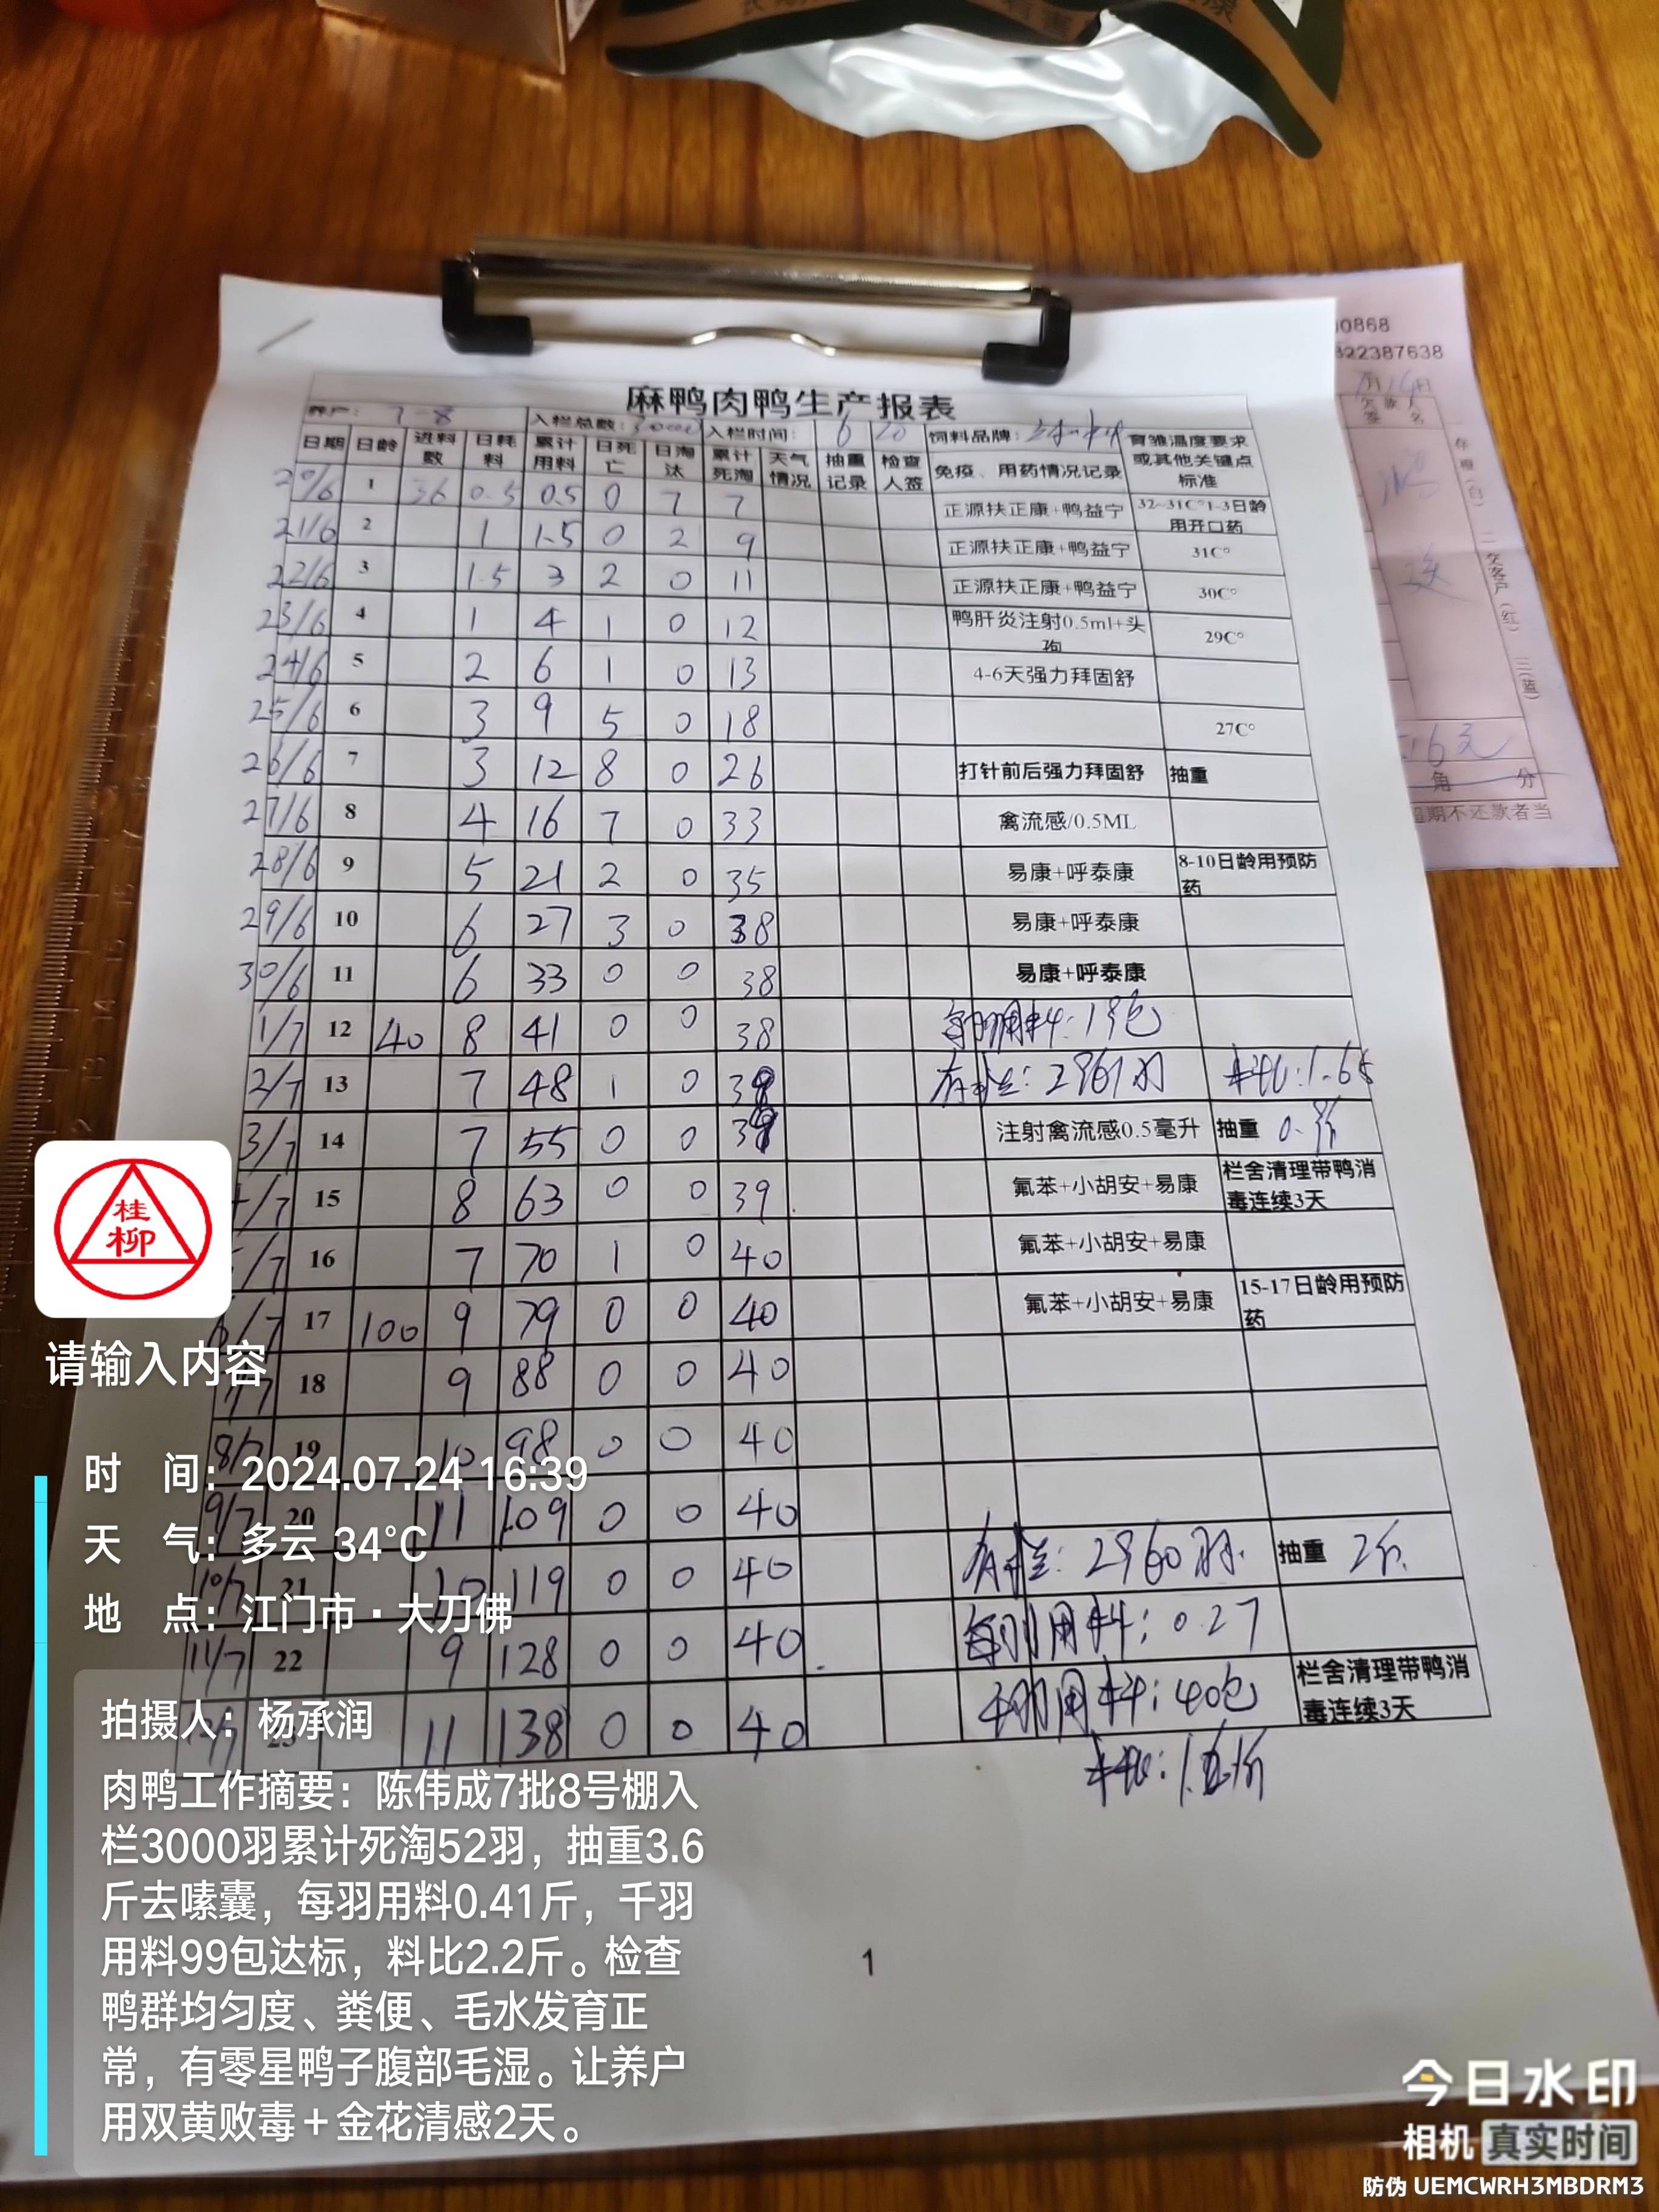 00868
322387638
欠款人
签名
存根(白) 二欠客户(红) 三(蓝)
516元
角 分
超期不还款者当
麻鸭肉鸭生产报表
养户: 7-8 入栏总数:3000 入栏时间: 6 20 饲料品牌:
日期 日龄 进料数 日耗料 累计用料 日死亡 日淘汰 累计死淘 天气情况 抽重记录 检查人签 免疫、用药情况记录 育雏温度要求或其他关键点标准
20/6 1 36 0.5 0.5 0 7 7 正源扶正康+鸭益宁 32-31C°1-3日龄用开口药
21/6 2 1 1.5 0 2 9 正源扶正康+鸭益宁 31C°
22/6 3 1.5 3 2 0 11 正源扶正康+鸭益宁 30C°
23/6 4 1 4 1 0 12 鸭肝炎注射0.5ml+头孢 29C°
24/6 5 2 6 1 0 13 4-6天强力拜固舒
25/6 6 3 9 5 0 18 27C°
26/6 7 3 12 8 0 26 打针前后强力拜固舒 抽重
27/6 8 4 16 7 0 33 禽流感/0.5ML
28/6 9 5 21 2 0 35 易康+呼泰康 8-10日龄用预防药
29/6 10 6 27 3 0 38 易康+呼泰康
30/6 11 6 33 0 0 38 易康+呼泰康
1/7 12 40 8 41 0 0 38 每羽用料:19包
2/7 13 7 48 1 0 39 存栏:2961羽 料比:1.65
3/7 14 7 55 0 0 39 注射禽流感0.5毫升 抽重
4/7 15 8 63 0 0 39 氟苯+小胡安+易康 栏舍清理带鸭消毒连续3天
/7 16 7 70 1 0 40 氟苯+小胡安+易康
6/7 17 100 9 79 0 0 40 氟苯+小胡安+易康 15-17日龄用预防药
7/7 18 9 88 0 0 40
8/7 19 10 98 0 0 40
9/7 20 11 109 0 0 40
10/7 21 10 119 0 0 40 存栏:2960羽. 抽重 2斤
11/7 22 9 128 0 0 40 每羽用料:0.27
23 11 138 0 0 40 千羽用料:40包 栏舍清理带鸭消毒连续3天
料比:
1
桂
柳
请输入内容
时 间:2024.07.24 16:39
天 气:多云 34°C
地 点:江门市·大刀佛
拍摄人:杨承润
肉鸭工作摘要:陈伟成7批8号棚入
栏3000羽累计死淘52羽,抽重3.6
斤去嗉囊,每羽用料0.41斤,千羽
用料99包达标,料比2.2斤。检查
鸭群均匀度、粪便、毛水发育正
常,有零星鸭子腹部毛湿。让养户
用双黄败毒+金花清感2天。
今日水印
相机 真实时间
防伪 UEMCWRH3MBDRM3